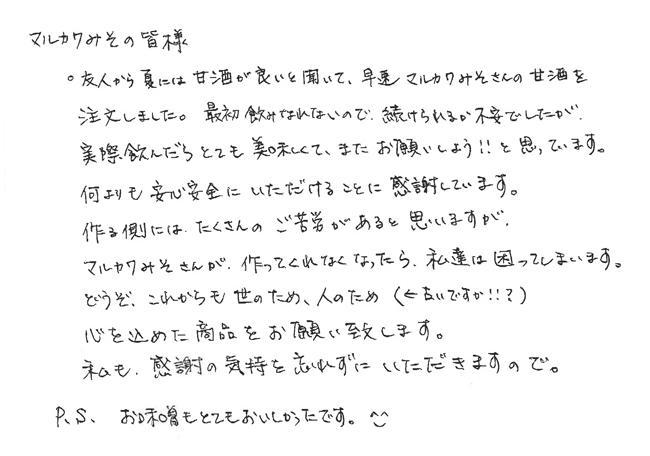 マルカワみその皆様
○友人から夏には甘酒が良いと聞いて、早速マルカワみそさんの甘酒を
注文しました。最初飲みなれないので、続けられるか不安でしたが、
実際飲んだらとても美味しくて、またお願いしよう!!と思っています。
何よりも安心安全にいただけることに感謝しています。
作る側には、たくさんのご苦労があると思いますが、
マルカワみそさんが、作ってくれなくなったら、私達は困ってしまいます。
どうぞ、これからも世のため、人のため(←古いですか!!?)
心を込めた商品をお願い致します。
私も、感謝の気持を忘れずにいただきますので。
P.S. お味噌もとてもおいしかったです。^^